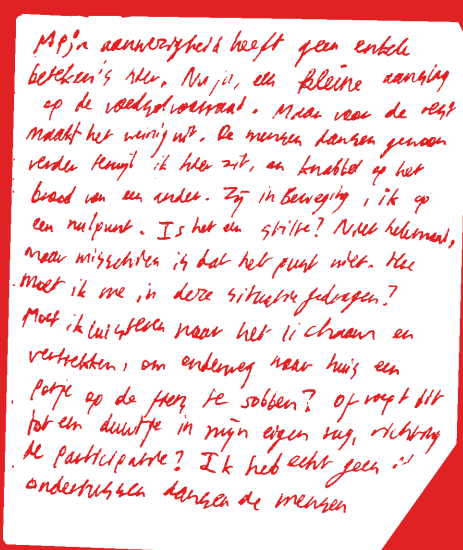 Mijn aanwezigheid heeft geen enkele
betekenis hier. Nu ja, een kleine aanslag
op de voedselvoorraad. Maar voor de rest
maakt het weinig uit. De mensen dansen gewoon
verder terwijl ik hier zit, en knabbel op het
brood van een ander. Zij in Beweging, ik op
een nulpunt. Is het een stilte? Niet helemaal,
maar misschien is dat het punt niet. Hoe
moet ik me in deze situatie gedragen?
Moet ik luisteren naar het lichaam en
vertrekken, om onderweg naar huis een
potje op de fiets te sobben? Of vraagt dit
tot een duwtje in mijn eigen rug, richting
de participatie? Ik heb echt geen
ondertussen dansen de mensen